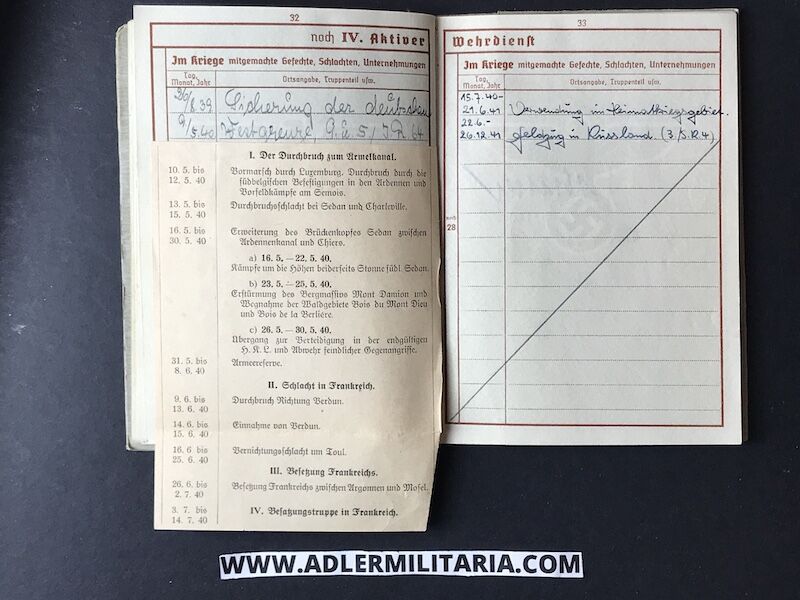 32
noch IV. Aktiver
Im Kriege mitgemachte Gefechte, Schlachten, Unternehmungen
Tag, Monat, Jahr
Ortsangabe, Truppenteil usw.
26/8.39 Sicherung der deutschen
9/5.40 Westgrenze, 9. u. 5/ J.R. 64
I. Der Durchbruch zum Armelkanal.
10. 5. bis Vormarsch durch Luxemburg. Durchbruch durch die
12. 5. 40 südbelgischen Befestigungen in den Ardennen und
Vorfeldkämpfe am Semois.
13. 5. bis Durchbruchsschlacht bei Sedan und Charleville.
15. 5. 40
16. 5. bis Erweiterung des Brückenkopfes Sedan zwischen
30. 5. 40 Ardennenkanal und Chiers.
a) 16. 5. — 22. 5. 40.
Kämpfe um die Höhen beiderseits Stonne südl. Sedan.
b) 23. 5. — 25. 5. 40.
Erstürmung des Bergmassivs Mont Damion und
Wegnahme der Waldgebiete Bois du Mont Dieu
und Bois de la Berlière.
c) 26. 5. — 30. 5. 40.
Übergang zur Verteidigung in der endgültigen
H. K. L. und Abwehr feindlicher Gegenangriffe.
31. 5. bis Armeereserve.
8. 6. 40
II. Schlacht in Frankreich.
9. 6. bis Durchbruch Richtung Verdun.
13. 6. 40
14. 6. bis Einnahme von Verdun.
15. 6. 40
16. 6 bis Vernichtungsschlacht um Toul.
25. 6. 40
III. Besetzung Frankreichs.
26. 6. bis Besetzung Frankreichs zwischen Argonnen und Mosel.
2. 7. 40
3. 7. bis IV. Besatzungstruppe in Frankreich.
14. 7. 40
33
Wehrdienst
Im Kriege mitgemachte Gefechte, Schlachten, Unternehmungen
Tag, Monat, Jahr
Ortsangabe, Truppenteil usw.
15.7.40-
21.6.41 Verwendung im Heimatkriegsgebiet.
22.6.-
26.12.41 Feldzug in Russland. (3./J.R.4)
noch
28
WWW.ADLERMILITARIA.COM